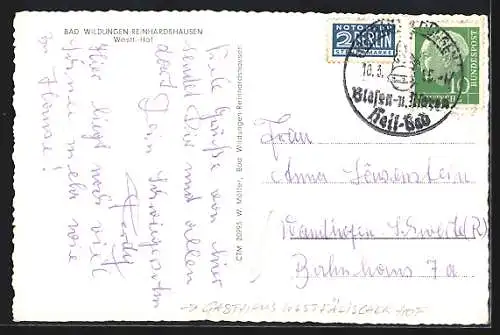 BAD WILDUNGEN-REINHARDSHAUSEN
Westf.-Hof
Viele Grüße von hier
sendet Dir und allen
dort Dein Schwiegersohn
Hier liegt noch viel
mehr wie
zu Hause!
CTM 2095 W. Möller, Bad Wildungen-Reinhardshausen
NOTOPFER
2 BERLIN
STEUERMARKE
DEUTSCHE BUNDESPOST
10
BAD WILDUNGEN
Blasen-u. Nieren
Heil-Bad
Frau
Anna Löwenstein
Bahnhofs 7a
→ GASTHAUS WESTFÄLISCHER HOF